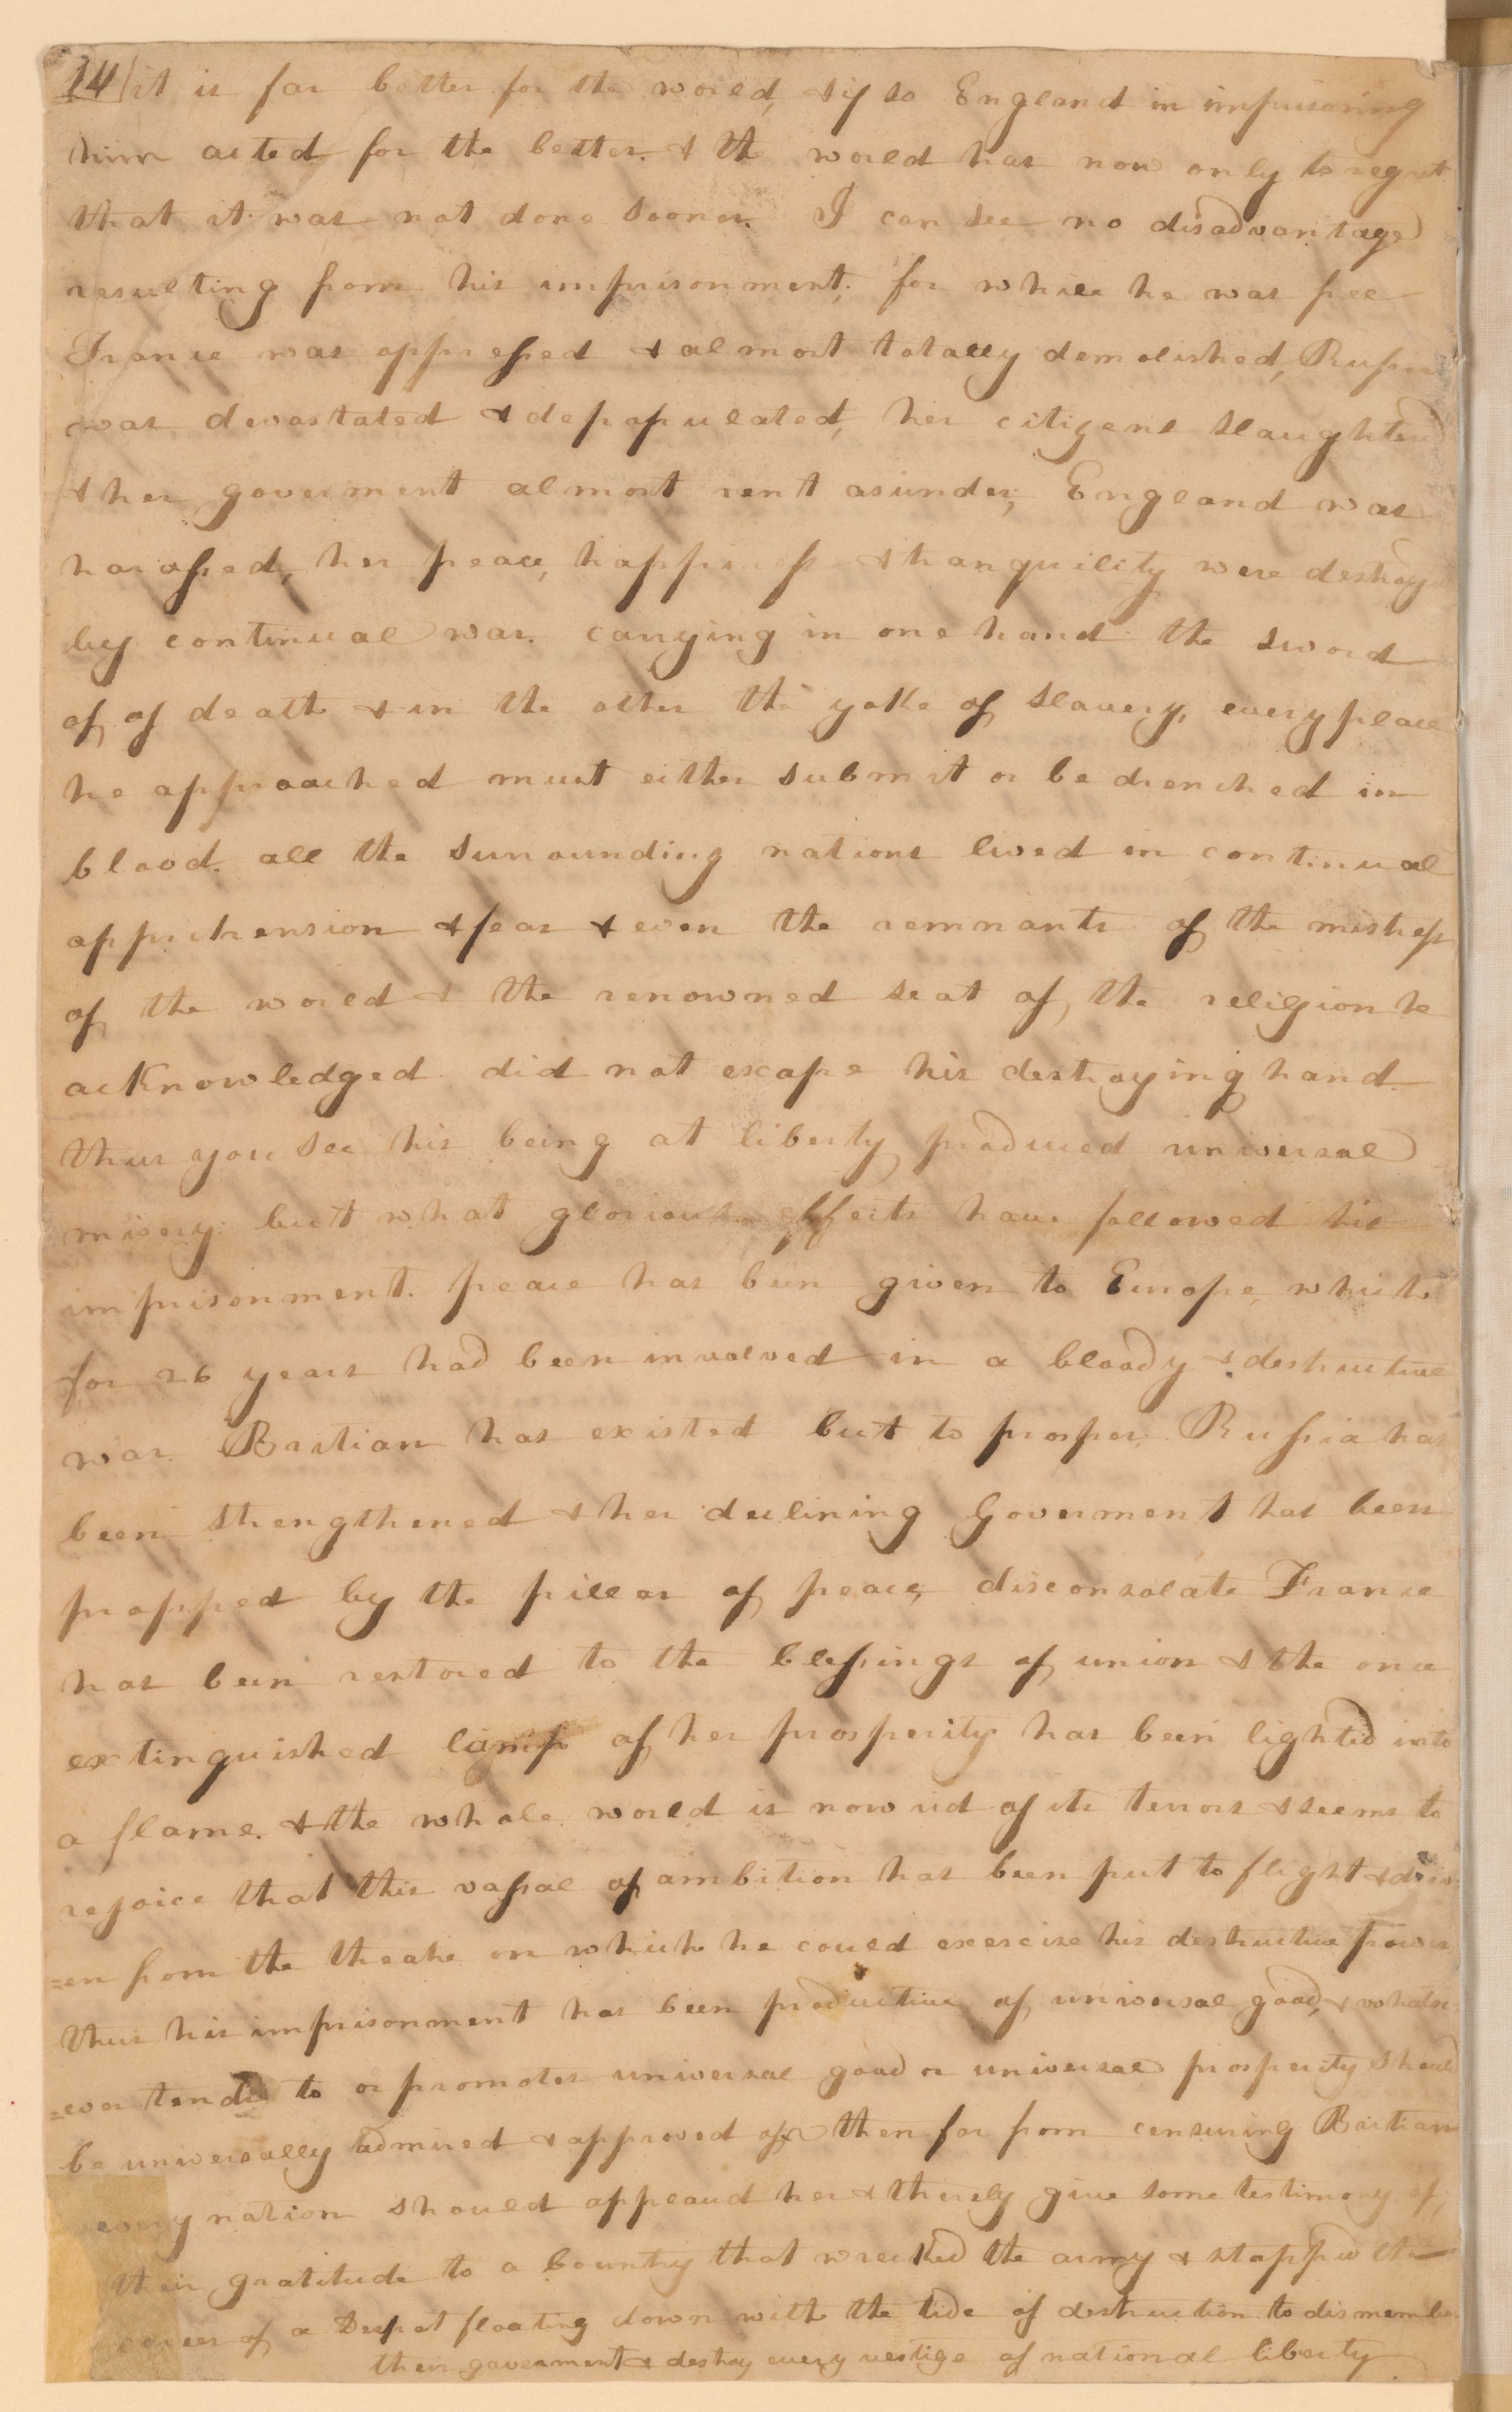 14/it is far better for the world, & if so England in imprisoning
him acted for the better. & the world has now only to regret
that it was not done sooner. I can see no disadvantage
resulting from his imprisonment, for while he was free
France was oppressed & almost totally demolished, Russia
was devastated & depopulated, her citizens slaughtered
& her goverment almost rent asunder, England was
harassed, her peace, happiness & tranquility were destroyed
by continual war. carrying in one hand the sword
of of death & in the other the yoke of slavery, every place
he approached must either submit or be drenched in
blood. all the surrounding nations lived in continual
apprehension & fear & even the remnants of the mistress
of the world & the renowned seat of the religion he
acknowledged did not escape his destroying hand.
thus you see his being at liberty produced universal
misery but what glorious effects have followed his
imprisonment. peace has been given to Europe, which
for 26 years had been involved in a bloody & destructive
war. Bratian has existed but to prosper. Russia has
been strengthened & her declining Goverment has been
propped by the pillar of peace, disconsolate France
has been restored to the blessings of union & the once
extinguished lamp of her prosperity has been lighted into
a flame. & the whole world is now rid of its terrors & seems to
rejoice that this vassal of ambition has been put to flight & driv
=en from the theatre on which he could exercise his destructive power
thus his imprisonment has been productive of universal good, & whatso=
=ever tends to or promotes universal good or universal prosperity should
be universally admired & approved of, then far from censuring Bratian
every nation should applaud her & thereby give some testimony of
their gratitude to a Country that wrecked the army & stopped the
career of a Despot floating down with the tide of destruction to dismember
their goverment & destroy every vestige of national liberty